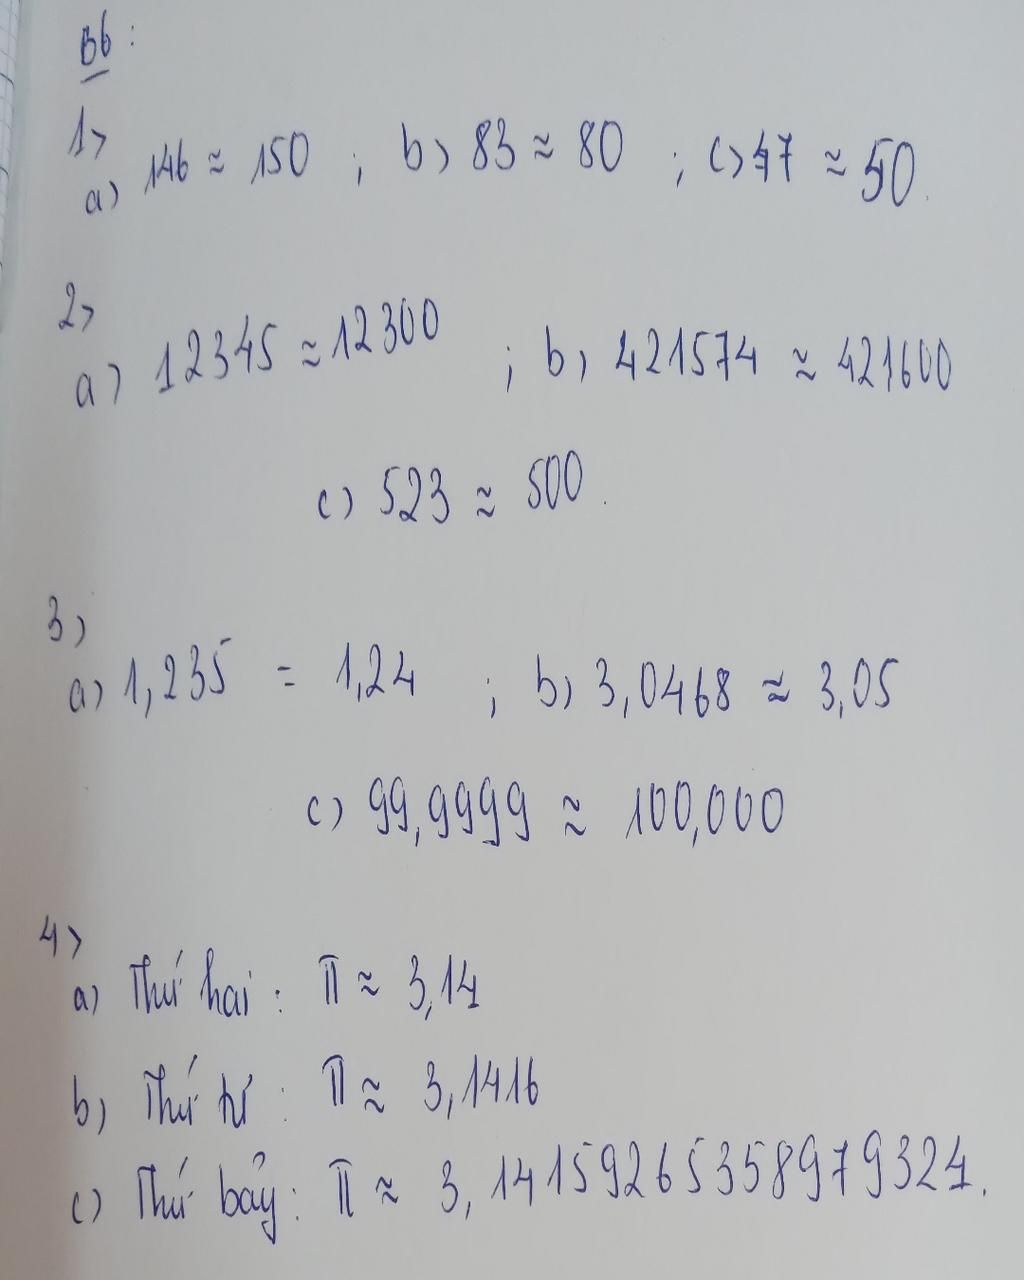 B6:
1>
a) 146 ≈ 150 ; b) 83 ≈ 80 ; c) 47 ≈ 50.
2>
a) 12345 ≈ 12300 ; b) 421574 ≈ 421600
c) 523 ≈ 500.
3)
a) 1,235 = 1,24 ; b) 3,0468 ≈ 3,05
c) 99,9999 ≈ 100,000
4>
a) Thứ hai: π ≈ 3,14
b) Thứ tư: π ≈ 3,1416
c) Thứ bảy: π ≈ 3,141592653589793241.